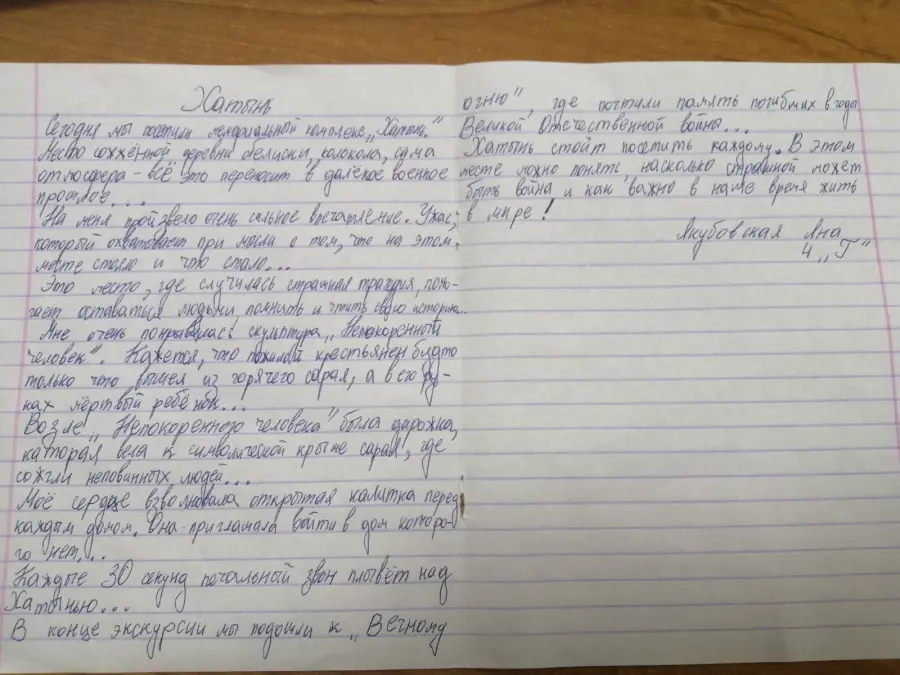 Хатынь
Сегодня мы посетили мемориальный комплекс „Хатынь."
Место сожжённой деревни обелиски, колокола, сама
атмосфера - всё это переносит в далёкое военное
прошлое...
На меня произвело очень сильное впечатление. Ужас,
который охватывает при мысли о том, что на этом
месте стояло и что стало...
Это место, где случилась страшная трагедия, помо-
гает оставаться людьми, помнить и чтить свою историю..
Мне очень понравилась скульптура „Непокоренный
человек". Кажется, что пожилой крестьянен будто
только что вышел из горячего сарая, а в его ру-
ках мёртвый ребёнок...
Возле „Непокоренного человека" была дарожка,
каторая вела к символической крыше сарая, где
сожгли неповинных людей...
Моё сердце взволновала открытая калитка перед
каждым домом. Она приглашала войти в дом которо-
го нет...
Каждые 30 секунд печальный звон плывёт над
Хатынью...
В конце экскурсии мы подошли к „Вечному
огню", где почтили память погибших в годы
Великой Отечественной войны...
Хатынь стоит посетить каждому. В этом
месте можно понять, насколько страшной может
быть война и как важно в наше время жить
в мире!
Якубовская Яна
4 „Г"